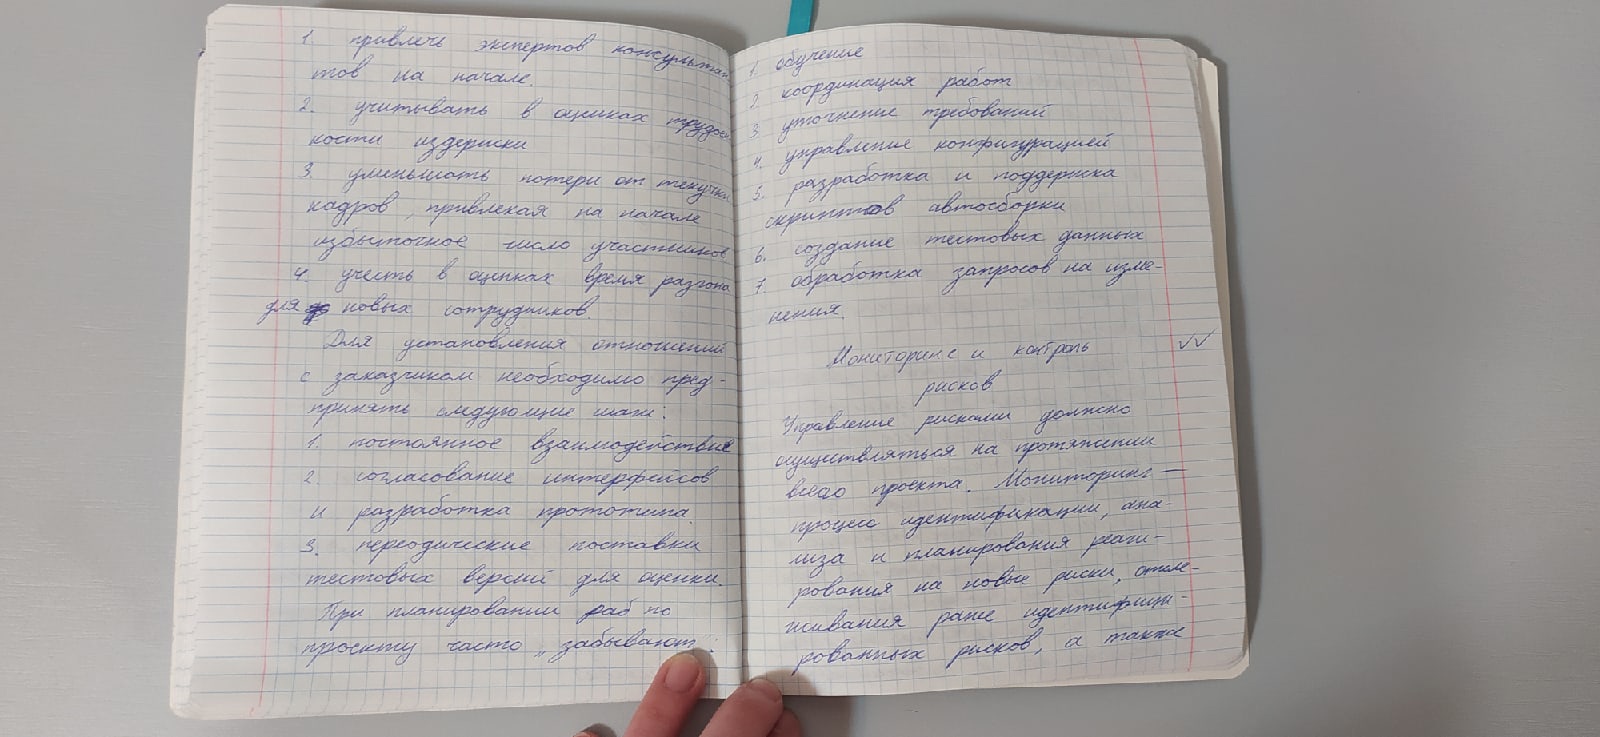 1. привлечь экспертов консультан
тов на начале.
2. учитывать в оценках трудоем
кости издержки
3. уменьшать потери от текучки
кадров, привлекая на начале
избыточное число участников
4. учесть в оценках время разгона
для новых сотрудников.
Для установления отношений
с заказчиком необходимо пред-
принять следующие шаги:
1. постоянное взаимодействие
2. согласование интерфейсов
и разработка прототипа.
3. переодические поставки
тестовых версий для оценки.
При планировании раб по
проекту часто „забывают":
1. обучение
2. координация работ
3. уточнение требований
4. управление конфигурацией
5. разработка и поддержка
скриптов автосборки
6. создание тестовых данных
7. обработка запросов на изме-
нения.
Мониторинг и контроль
рисков
Управление рисками должно
осуществляться на протяжении
всего проекта. Мониторинг —
процесс идентификации, ана-
лиза и планирования реаги-
рования на новые риски, отсле-
живания ранее идентифици-
рованных рисков, а также